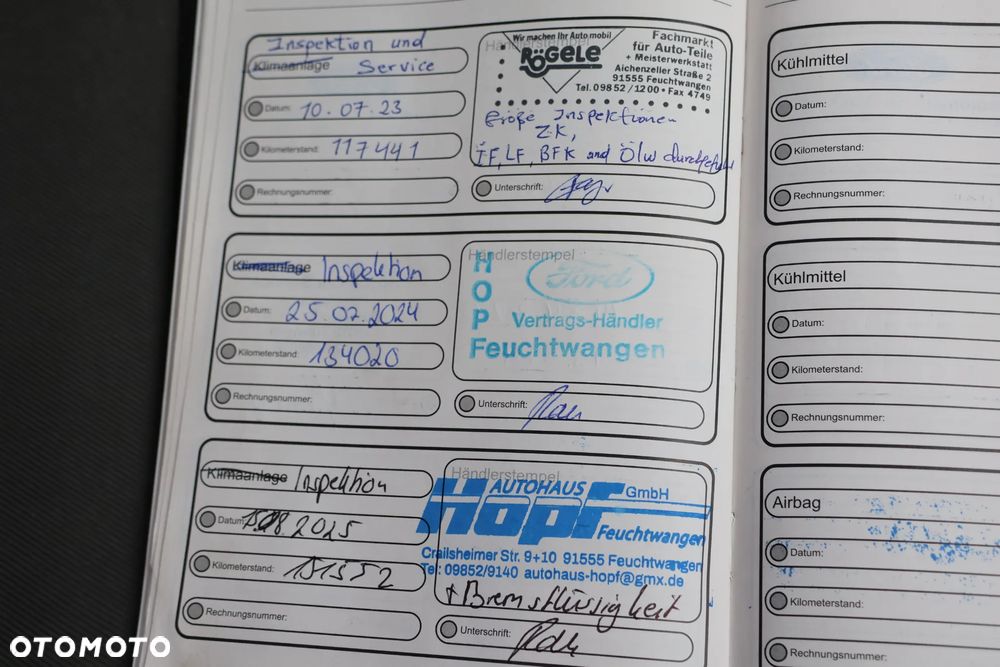 Inspektion und
Klimaanlage Service
Datum: 10.07.23
Kilometerstand: 117441
Rechnungsnummer:
Händlerstempel
Wir machen Ihr Automobil
RÖGELE
Fachmarkt
für Auto-Teile
+ Meisterwerkstatt
Aichenzeller Straße 2
91555 Feuchtwangen
Tel. 09852/1200 • Fax 4749
Große Inspektionen
Z.K,
IF, LF, BFK und ÖLW durchgeführt
Unterschrift:
Klimaanlage Inspektion
Datum: 25.07.2024
Kilometerstand: 134020
Rechnungsnummer:
Händlerstempel
HOPF
Ford
Vertrags-Händler
Feuchtwangen
Unterschrift:
Klimaanlage Inspektion
Datum: 08.2025
Kilometerstand: 151552
Rechnungsnummer:
Händlerstempel
AUTOHAUS
Hopf GmbH
Feuchtwangen
Crailsheimer Str. 9+10 91555 Feuchtwangen
Tel: 09852/9140 autohaus-hopf@gmx.de
+ Bremsflüssigkeit
Unterschrift:
Kühlmittel
Datum:
Kilometerstand:
Rechnungsnummer:
Kühlmittel
Datum:
Kilometerstand:
Rechnungsnummer:
Airbag
Datum:
Kilometerstand:
Rechnungsnummer:
OTOMOTO